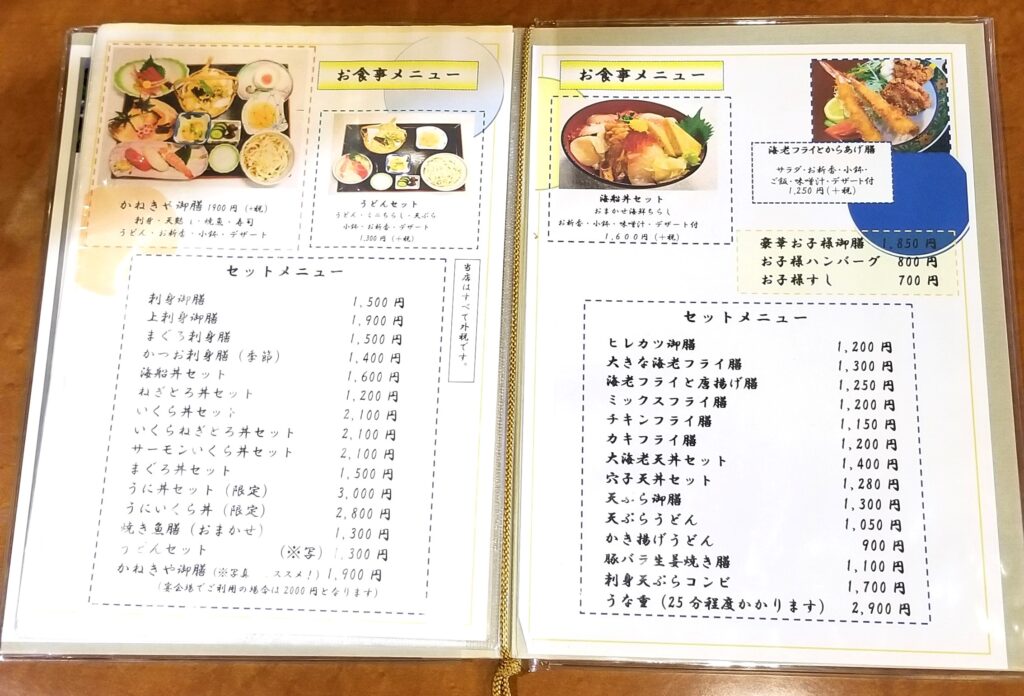 お食事メニュー
かねきや御膳 1900円(+税)
刺身・天麩ら・焼魚・寿司
うどん・お新香・小鉢・デザート
うどんセット
うどん・ミニちらし・天ぷら
小鉢・お新香・デザート
1,300円(+税)
当店はすべて外税です。
セットメニュー
刺身御膳 1,500円
上刺身御膳 1,900円
まぐろ刺身膳 1,500円
かつお刺身膳(季節) 1,400円
海船丼セット 1,600円
ねぎとろ丼セット 1,200円
いくら丼セット 2,100円
いくらねぎとろ丼セット 2,100円
サーモンいくら丼セット 2,100円
まぐろ丼セット 1,500円
うに丼セット(限定) 3,000円
うにいくら丼(限定) 2,800円
焼き魚膳(おまかせ) 1,300円
うどんセット (※写) 1,300円
かねきや御膳(※写真 ススメ!) 1,900円
(宴会場でご利用の場合は2000円となります)
お食事メニュー
海船丼セット
おまかせ海鮮ちらし
お新香・小鉢・味噌汁・デザート付
1,600円(+税)
海老フライとからあげ膳
サラダ・お新香・小鉢・
ご飯・味噌汁・デザート付
1,250円(+税)
豪華お子様御膳 1,850円
お子様ハンバーグ 800円
お子様すし 700円
セットメニュー
ヒレカツ御膳 1,200円
大きな海老フライ膳 1,300円
海老フライと唐揚げ膳 1,250円
ミックスフライ膳 1,200円
チキンフライ膳 1,150円
カキフライ膳 1,200円
大海老天丼セット 1,400円
穴子天丼セット 1,280円
天ぷら御膳 1,300円
天ぷらうどん 1,050円
かき揚げうどん 900円
豚バラ生姜焼き膳 1,100円
刺身天ぷらコンビ 1,700円
うな重(25分程度かかります) 2,900円